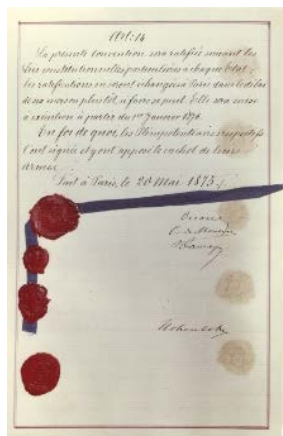 Art: 14
La présente convention sera ratifiée suivant les
lois constitutionnelles particulières à chaque Etat;
les ratifications en seront échangées à Paris dans le délai
de six mois ou plus tôt, si faire se peut. Elle sera mise
à exécution à partir du 1er Janvier 1876.
En foi de quoi, les Plénipotentiaires respectifs
l'ont signée et y ont apposé le cachet de leurs
armes.
Fait à Paris, le 20 Mai 1875.
Hohenlohe